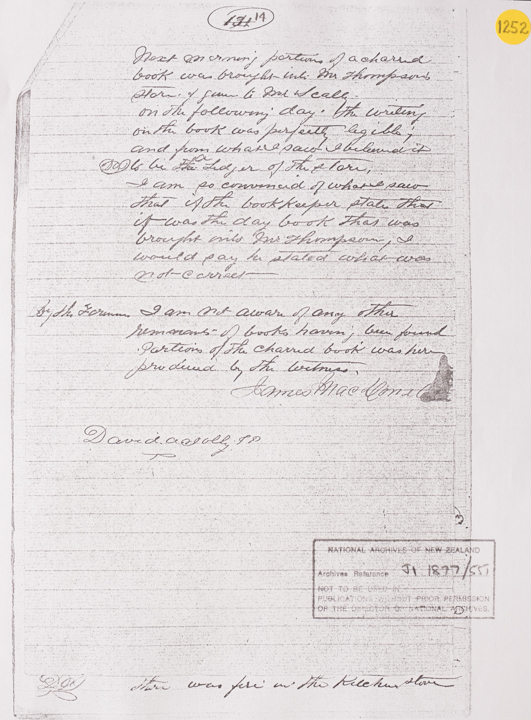 14
1252
Next morning portions of a charred
book was brought into Mr Thompson's
store & given to Mr Scally.
on the following day. The writing
on the book was perfectly legible,
and from what I saw I believed it
to be the Ledger of the store,
I am so convinced of what I saw
that if the bookkeeper states that
it was the day book that was
brought into Mr Thompsons, I
would say he stated what was
not correct
By the Foreman I am not aware of any other
remnants of books having been found
Portions of the charred book was here
produced by the witness.
James Mac
David
NATIONAL ARCHIVES OF NEW ZEALAND
Archives Reference J1 1877/555
NOT TO BE USED IN
PUBLICATIONS WITHOUT PRIOR PERMISSION
OF THE DIRECTOR OF NATIONAL ARCHIVES.
there was fire in the Kitchen stove